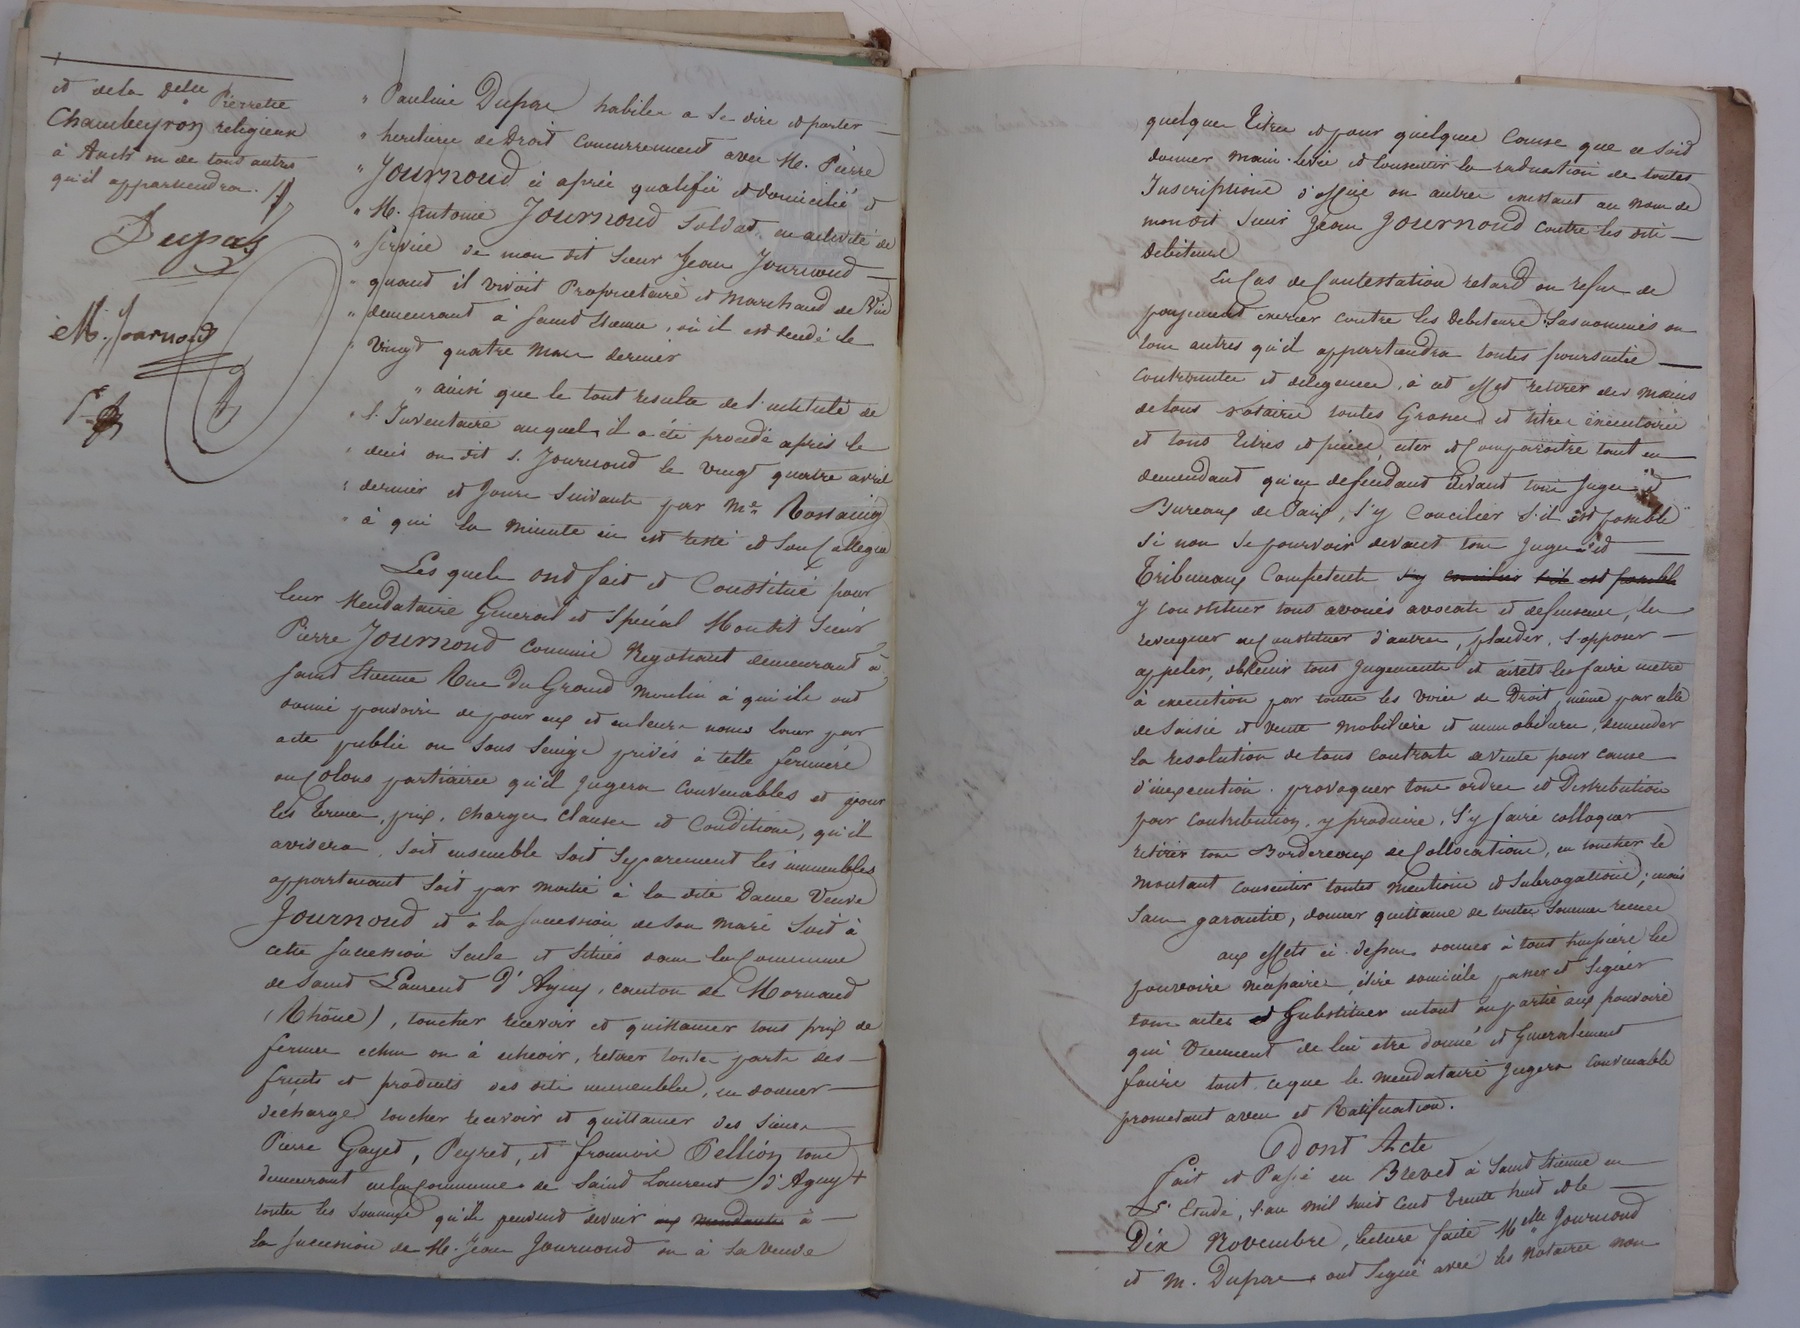 et de la Delle Pierrette
Chambeyron religieuse
à Auch ou de tous autres
qu'il appartiendra.
Dupas
M. Journoud
" Pauline Dupas habiles a se dire et porter
" heritiere de Droit concurremment avec M. Pierre
" Journoud ci après qualifié et domicilié et
" M. Antoine Journoud Soldat en activité de
" service de mon dit Sieur Jean Journoud
" quand il vivoit Propriétaire et Marchand de Vin
" demeurant à Saint Etienne, où il est décédé le
" Vingt quatre Mars dernier
" ainsi que le tout resulte de l'intitulé de
" l'Inventaire auquel il a été procédé après le
" décès du dit S. Journoud le Vingt quatre avril
" dernier et Jours Suivants par Me
" à qui la minute en est restée et Son Collegue
Les quels ont fait et Constitué pour
leur Mendataire Géneral et Spécial Mondit Sieur
Pierre Journoud Commis Negotiant demeurant à
Saint Etienne Rue du Grand Moulin à qui ils ont
donné pouvoir de pour eux et en leurs noms louer par
acte public ou Sous Seings privés à telle fermiers
ou Colons partiaires qu'il Jugera Convenables et pour
les termes, prix, charges clauses et Conditions, qu'il
avisera, Soit ensemble Soit Séparement les immeubles
appartenant Soit par moitié à la dite Dame Veuve
Journoud et à la Succession de Son Mari Soit à
cette Succession Seule et Situés dans la Commune
de Saint Laurent D'Agny, canton de Mornand
(Rhône), toucher recevoir et quittancer tous prix de
fermes echus ou à echeoir, retirer toutes parts des
fruits et produits des dits immeubles, en donner
décharge toucher recevoir et quittancer des Sieurs
Pierre Gayet, Peyret, et françois Pellion tous
demeurant en la Commune de Saint Laurent D'Agny +
toutes les Sommes qu'ils peuvent devoir aux Mandants à
la Succession de M. Jean Journoud ou à Sa Veuve
quelques titres et pour quelque Cause que ce Soit
donner main-levée et Consentir la radiation de toutes
Inscriptions d'office ou autres existant au nom de
mon dit Sieur Jean Journoud contre les dits
débiteurs
En Cas de Contestation retard ou refus de
payement exercer contre les Débiteurs Susnommés ou
tous autres qu'il appartiendra toutes poursuites
contraintes et diligences, à cet effet retirer des mains
de tous Notaires toutes Grosses et titres exécutoires
et tous titres et pièces, citer et Comparoitre tant en
demendant qu'en defendant devant tous Juges et
Bureaux de Paix, S'y Concilier S'il est possible
Si non Se pourvoir devant tous Juges et
Tribunaux Compétents s'y concilier s'il est possible
y constituer tous avoués avocats et defenseurs, les
revoquer en Constituer d'autres, plaider, S'opposer
appeler, obtenir tous Jugements et arrêts les faire mettre
à execution par toutes les Voies de Droit, même par celle
de Saisie et Vente Mobilière et immobilière, demender
la resolution de tous contrats de Vente pour cause
d'inexecution. provoquer tous ordres et Distribution
par contribution, y produire, S'y faire colloquer
retirer tous Bordereaux de Collocations, en toucher le
montant consentir toutes Mentions et Subrogations; mais
Sans garantie, donner quittance de toutes Sommes recues
aux effets ci-dessus donner à tous huissiers les
pouvoirs nécessaires, élire domicile passer et Signer
tous actes et Substituer en tout ou partie aux pouvoirs
qui Viennent de lui etre donné et Généralement
faire tout ceque le Mendataire Jugera convenable
prometant aveu et Ratification.
Dont Acte
Fait et Passé en Brevet à Saint Etienne en
L'Etude, l'an mil huit Cent trente huit et le
Dix Novembre, lecture faite Melle Journoud
et M. Dupas ont Signé avec les Notaires non